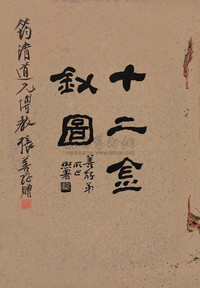 十二金
釵圖
善孖弟
筠清道兄傅教 張善孖贈